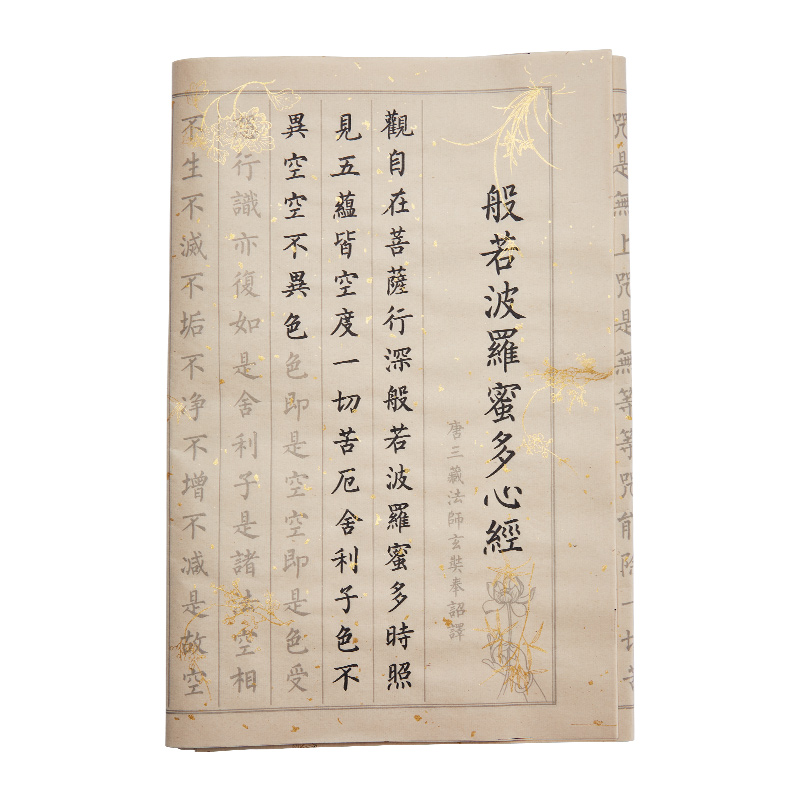 咒是無上咒是無等等咒能除一切苦
般若波羅蜜多心經
唐三藏法師玄奘奉詔譯
觀自在菩薩行深般若波羅蜜多時照
見五蘊皆空度一切苦厄舍利子色不
異空空不異色色即是空空即是色受
想行識亦復如是舍利子是諸法空相
不生不滅不垢不净不增不减是故空